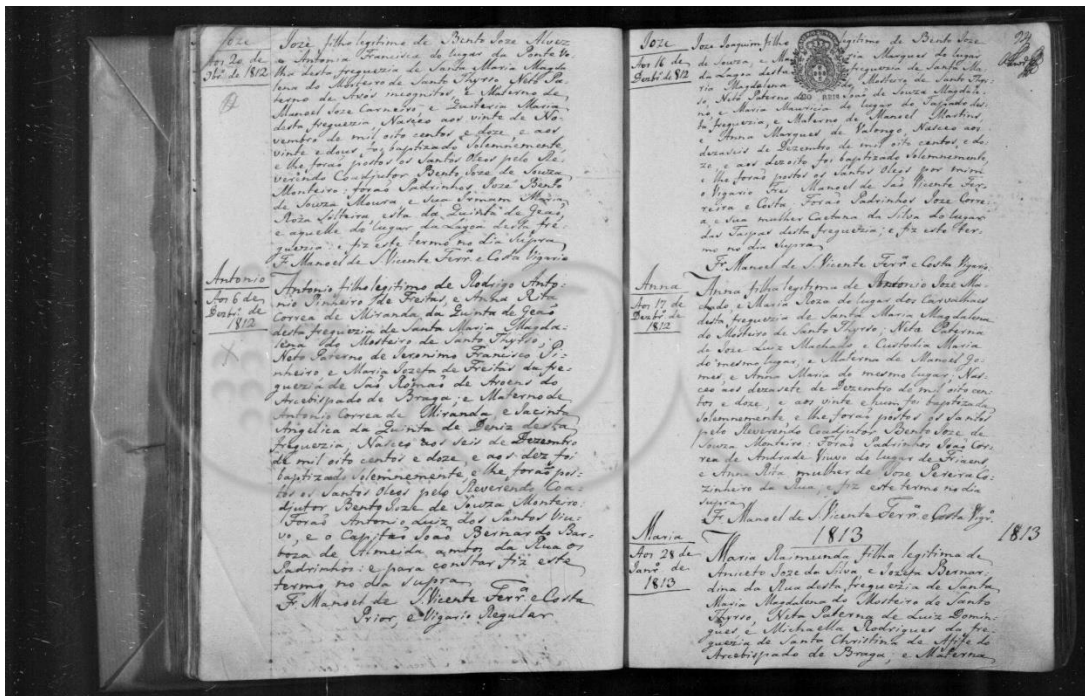 Joze
Aos 20 de
9br.o de 1812
Joze filho legitimo de Bento Joze Alvez
e Antonia Francisca do lugar da Ponte Ve
lha desta freguezia de Santa Maria Magda
lena do Mosteiro de Santo Thyrso, Neto Pa
terno de Avós incognitos, e Materno de
Manoel Joze Carneiro, e Quiteria Maria
desta freguezia Nasceo aos vinte de No-
vembro de mil oito centos e doze, e aos
vinte e dous, foi baptizado Solemnemente,
e lhe forão postos os Santos Oleos pelo Re-
verendo Coadjutor Bento Joze de Souza
Monteiro: forão Padrinhos, Jozé Bento
de Souza Moura e Sua Irmam Maria
Roza Solteira esta da Quinta de Geão,
e aquelle do lugar da Lagoa desta fre-
guezia: e fiz este termo no dia Supra
Fr. Manoel de S. Vicente Ferr.a e Costa Vigario
Antonio
Aos 6 de
Dezbr.o de
1812
Antonio filho legitimo de Rodrigo Anto-
nio Pinheiro de Freitas, e Anna Rita
Correa de Miranda, da Quinta de Geão
desta freguezia de Santa Maria Magda-
lena do Mosteiro de Santo Thyrso,
Neto Paterno de Jeronimo Francisco Pi-
nheiro e Maria Jozefa de Freitas da fre-
guezia de São Romão de Aroens do
Arcebispado de Braga; e Materno de
Antonio Correa de Miranda, e Jacinta
Angelica da Quinta de Deniz desta
freguezia, Nasceo aos seis de Dezembro
de mil oito centos e doze, e aos dez foi
baptizado Solemnemente, e lhe forão pos-
tos os Santos Oleos pelo Reverendo Coa-
djutor Bento Joze de Souza Monteiro:
Forão Antonio Luiz dos Santos Viu-
vo, e o Capitão João Bernardo Bar-
boza de Almeida, ambos da Rua os
Padrinhos: e para constar fiz este
termo no dia supra
Fr. Manoel de S. Vicente Ferr.a e Costa
Prior, e Vigario Regular
94
Joze
Aos 16 de
Dezbr.o de 1812
Joze Joaquim filho legitimo de Bento Joze
de Souza, e Maria Marques do lugar
da Lagoa desta freguezia de Santa Ma-
ria Magdalena do Mosteiro de Santo Thyr-
so, Neto Paterno de João de Souza Magdale-
no, e Maria Mauricia do lugar do Tapado des-
ta freguezia, e Materno de Manoel Martins,
e Anna Marques de Valongo, Nasceo aos
dezaseis de Dezembro de mil oito centos, e do-
ze, e aos dezoito foi baptizado Solemnemente,
e lhe forão postos os Santos Oleos por mim
o Vigario Frei Manoel de São Vicente Fer-
reira e Costa. Forão Padrinhos Joze Corre-
a, e Sua mulher Caetana da Silva do lugar
das Taipas desta freguezia; e fiz este ter-
mo no dia Supra
Fr. Manoel de S. Vicente Ferr.a e Costa Vigario
Anna
Aos 17 de
Dezbr.o de
1812
Anna filha legitima de Antonio Joze Ma-
chado, e Maria Roza do lugar dos Carvalhaes
desta freguezia de Santa Maria Magdalena
do Mosteiro de Santo Thyrso; Neta Paterna
de Joze Luiz Machado e Custodia Maria
do mesmo lugar, e Materna de Manoel Go-
mes, e Anna Maria do mesmo lugar, Nas-
ceo aos dezasete de Dezembro de mil oito cen-
tos e doze, e aos vinte e hum foi baptizada
Solemnemente e lhe forão postos os Santos
pelo Reverendo Coadjutor Bento Joze de
Souza Monteiro: Forão Padrinhos João Cor-
rea de Andrade Viuvo do lugar de Friaens
e Anna Rita mulher de Joze Pereira Co-
zinheiro da Rua, e fiz este termo no dia
supra
Fr. Manoel de S. Vicente Ferr.a e Costa Vigr.o
1813
1813
Maria
Aos 28 de
Janr.o de
1813
Maria Raimunda filha legitima de
Aniceto Joze da Silva e Jozefa Bernar-
dina da Rua desta freguezia de Santa
Maria Magdalena do Mosteiro de Santo
Thyrso, Neta Paterna de Luiz Domin-
gues, e Michaella Rodrigues da fre-
guezia de Santa Christina de Afife do
Arcebispado de Braga, e Materna